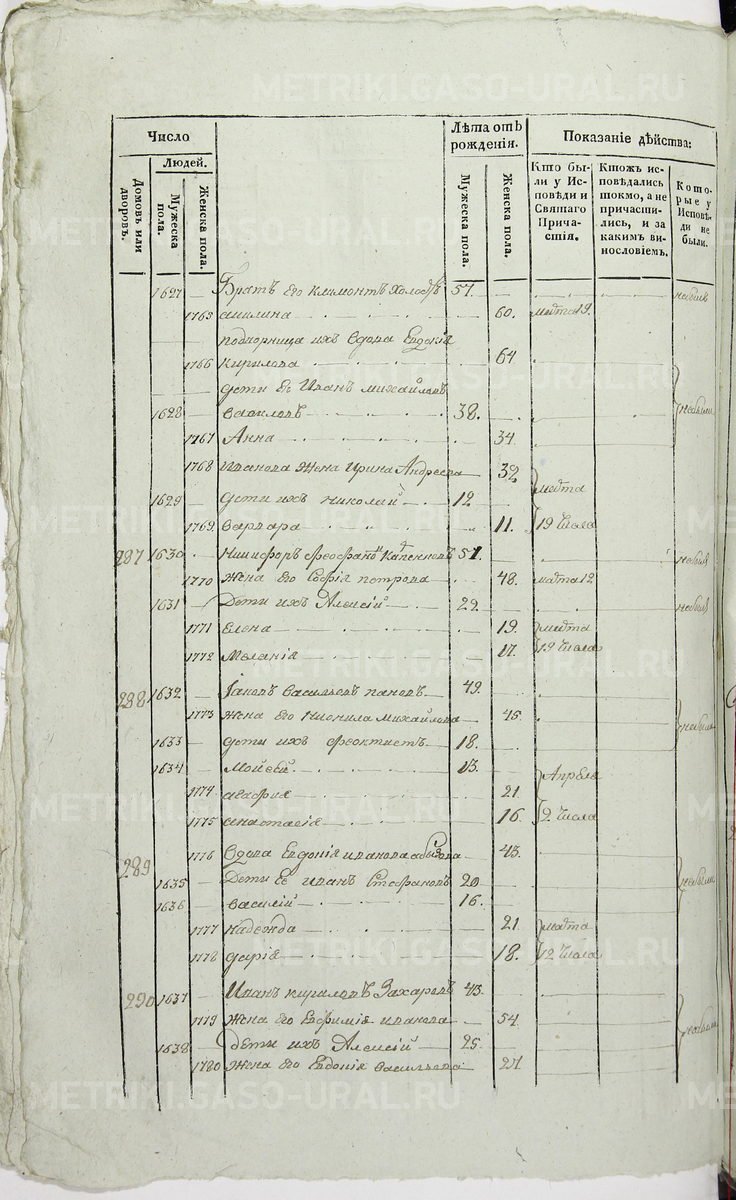 METRIKI.GASO-URAL.RU
Число
Лѣта отъ рожденія.
Показаніе дѣйства:
Людей.
Домовъ или дворовъ.
Мужеска пола.
Женска пола.
Мужеска пола.
Женска пола.
Кто были у Исповѣди и Святаго Причастія.
Ктожъ исповѣдались токмо, а не причастились, и за какимъ винословіемъ.
Которые у Исповѣди не были.
1627 Братъ его Климонтъ холостъ 57.
1765 60. марта 19.
подворница ихъ вдова Евдокія
1766 Кирилова 64
дети еѣ Иванъ михайловъ
1628 38. небыли
1767 Анна 34.
1768 Иванова жена Ирина Андреева 32 марта
1629 дети ихъ николай 12
1769 варвара 11. 19 числа
287 1630 Никифоръ Феофановъ 51.
1770 жена его Софія петрова 48. марта 12
1631 Дети ихъ Алексій 22.
1771 Елена 19. марта
1772 Меланія 17. 12 числа
288 1632 Іаковъ васильевъ пановъ 49.
1773 жена его Неонила михайлова 45. небыли
1633 дети ихъ феоктистъ 18.
1634 Мойсей 13. Апреля
1774 агафия 21
1775 анастасія 16. 2 числа
289 1776 вдова Евдокія иванова 43.
1635 Дети еѣ иванъ Стефановъ 20 небыли
1636 василій 16.
1777 надежда 21 марта
1778 дарія 18. 12 числа
290 1637 Иванъ кириловъ Захаровъ 43.
1779 жена его Евфимія иванова 54. небыли
1638 дети ихъ Алексій 25
1780 жена его Евдокія васильева 27.